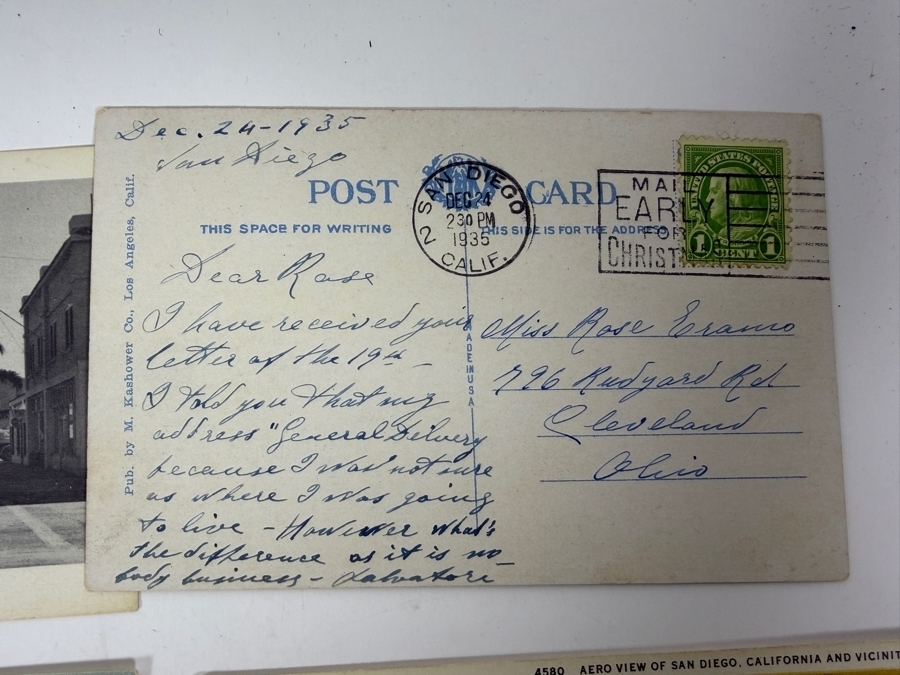 Dec. 24-1935
San Diego
POST CARD
SAN DIEGO
DEC 24
2 30 PM
1935
2
CALIF.
MAIL
EARLY
FOR
CHRISTMAS
UNITED STATES POSTAGE
1 CENT 1
THIS SPACE FOR WRITING
THIS SIDE IS FOR THE ADDRESS
Pub. by M. Kashower Co., Los Angeles, Calif.
MADE IN USA
Dear Rose
I have received your
letter of the 19th -
I told you that my
address "General Delivery
because I was not sure
as where I was going
to live - However what's
the difference as it is no-
body business - Salvatore
Miss Rose Eramo
796 Rudyard Rd
Cleveland
Ohio
4580 AERO VIEW OF SAN DIEGO, CALIFORNIA AND VICINIT